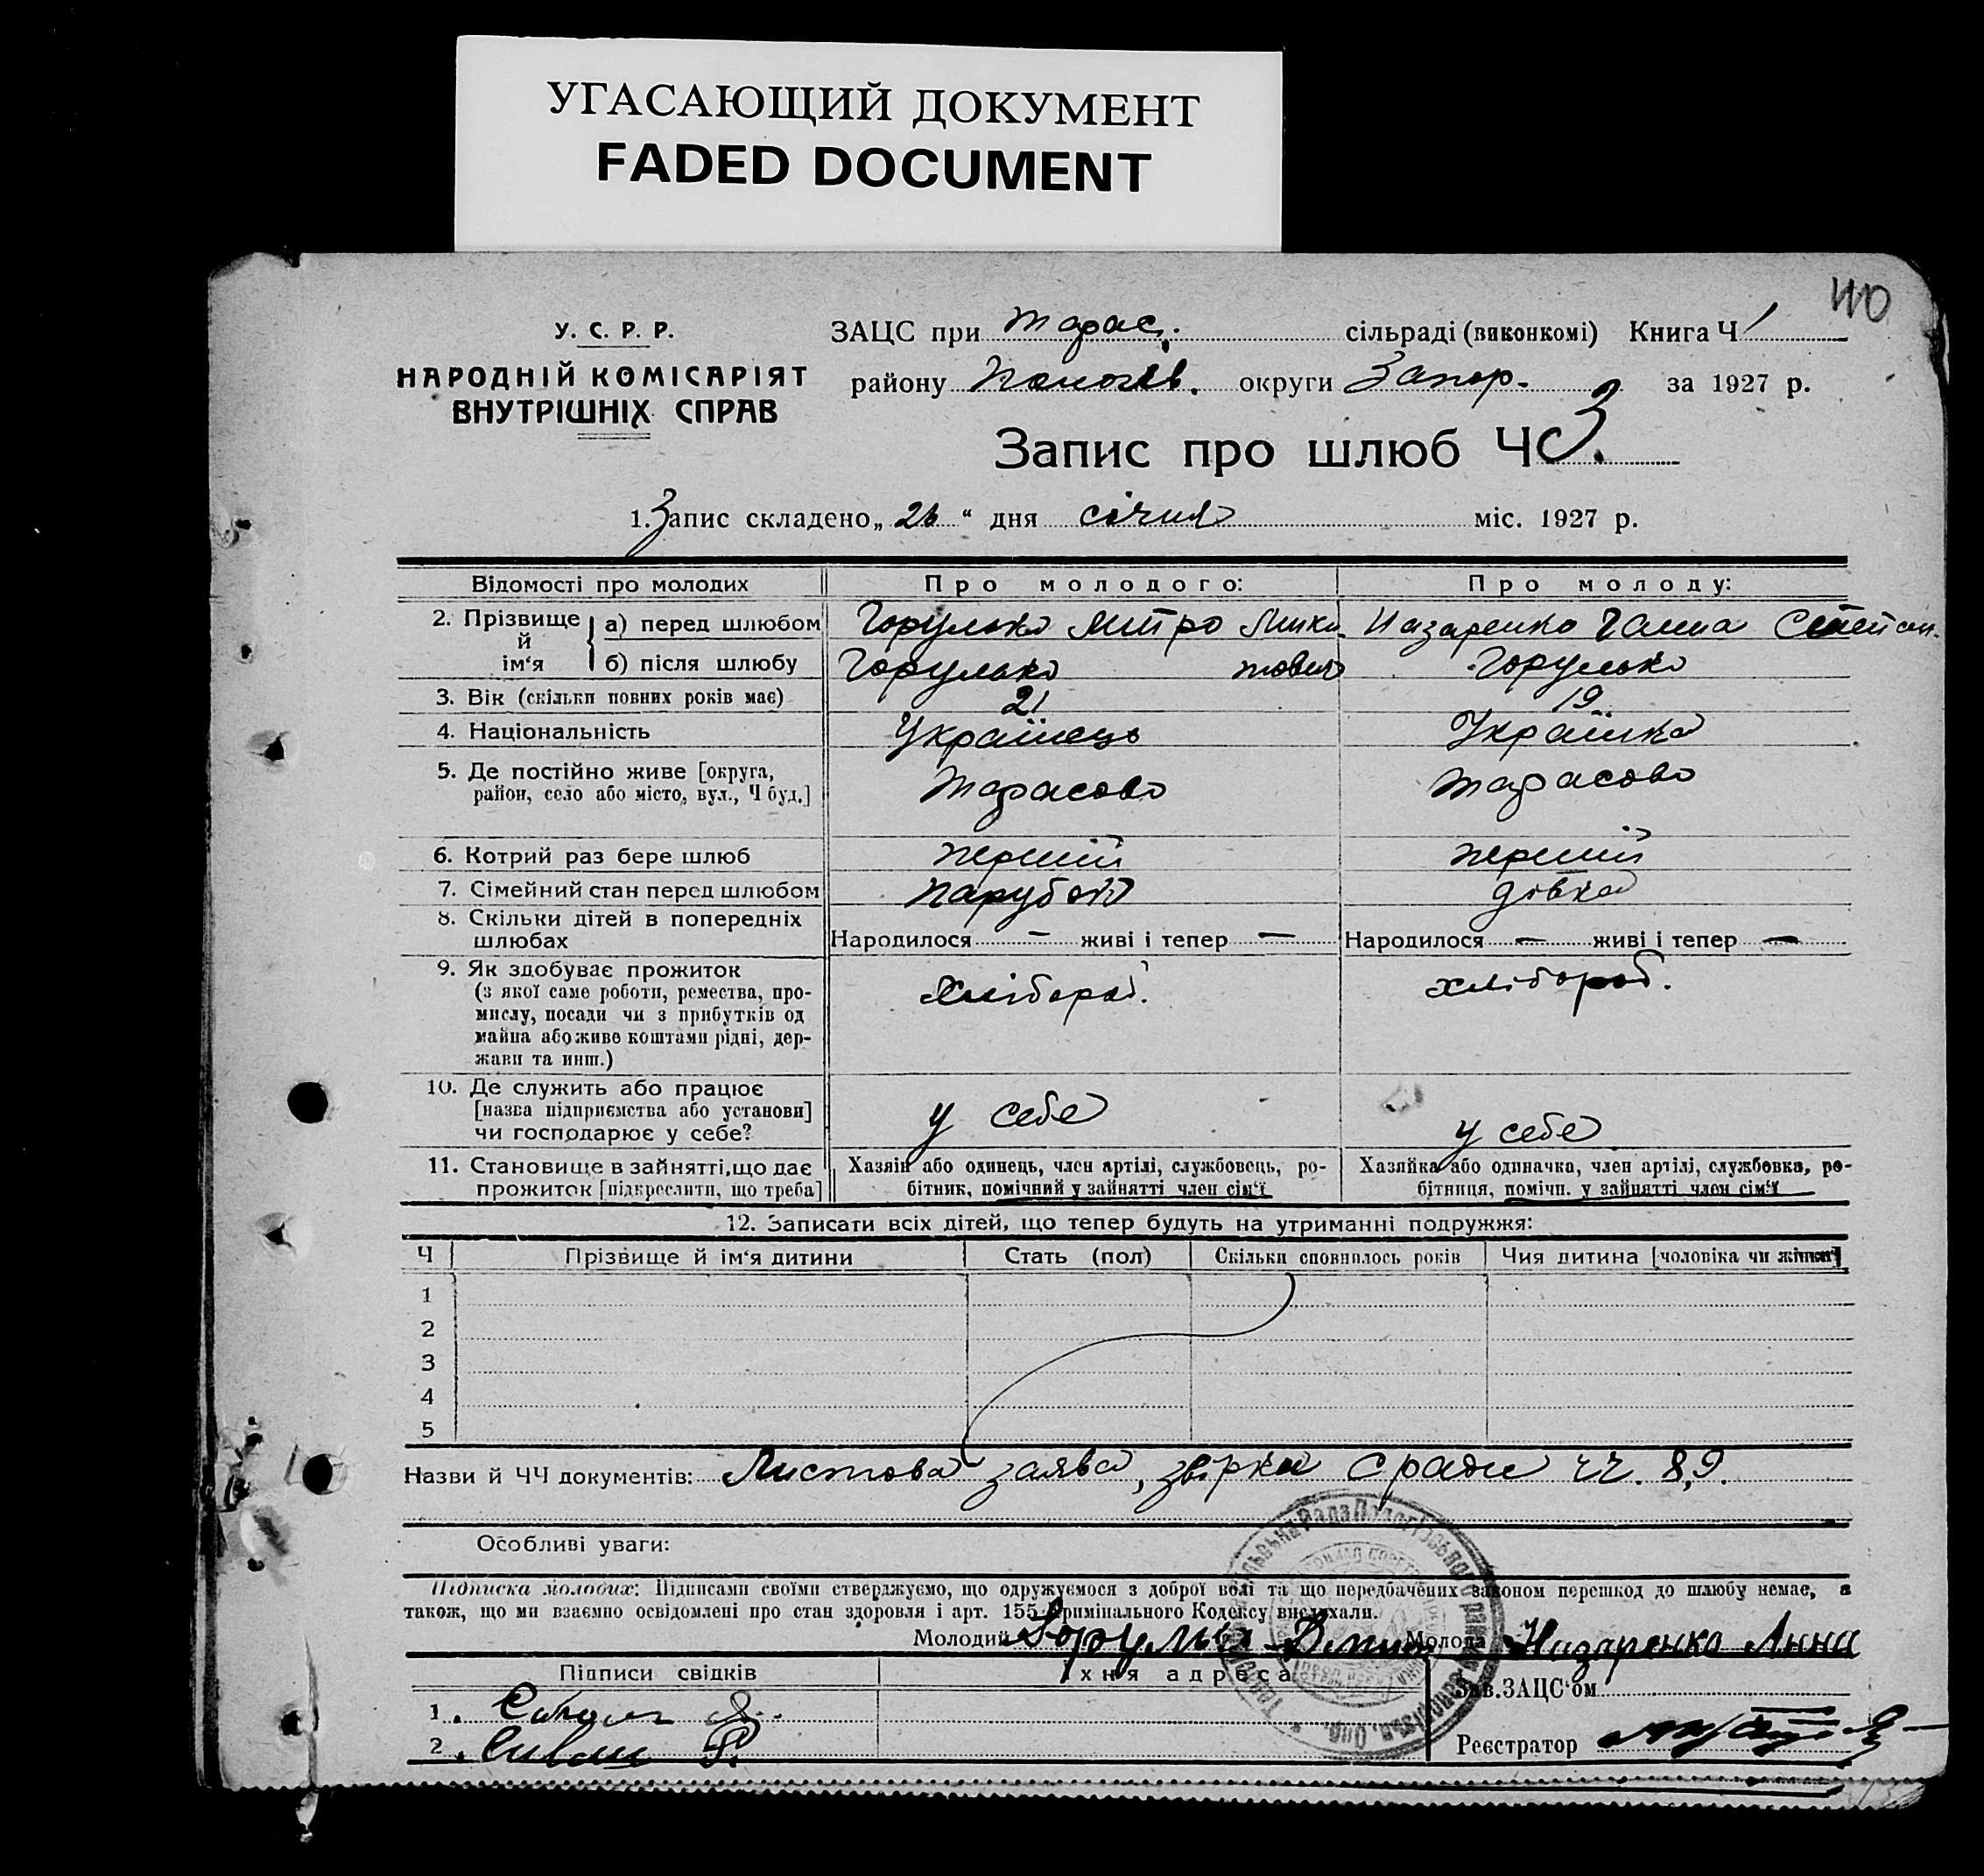 УГАСАЮЩИЙ ДОКУМЕНТ
FADED DOCUMENT
110
У. С. Р. Р.
НАРОДНІЙ КОМІСАРІЯТ
ВНУТРІШНІХ СПРАВ
ЗАЦС при Тарас. сільраді (виконкомі) Книга Ч 1
району Пологів. округи Запор. за 1927 р.
Запис про шлюб Ч 3.
1. Запис складено „26“ дня січня міс. 1927 р.
Відомості про молодих Про молодого: Про молоду:
2. Прізвище й ім‘я а) перед шлюбом Горулько Митро Мики- Назаренко Ганна Степан.
б) після шлюбу Горулько тович Горулько
3. Вік (скільки повних років має) 21 19
4. Національність Українець Українка
5. Де постійно живе [округа, район, село або місто, вул., Ч буд.] Тарасово Тарасово
6. Котрий раз бере шлюб перший перший
7. Сімейний стан перед шлюбом парубок дівка
8. Скільки дітей в попередніх шлюбах Народилося — живі і тепер — Народилося — живі і тепер —
9. Як здобуває прожиток Хлібороб. хлібороб.
(з якої саме роботи, ремества, про-
мислу, посади чи з прибутків од
майна або живе коштами рідні, дер-
жави та инш.)
10. Де служить або працює
[назва підприємства або установи] у себе у себе
чи господарює у себе?
11. Становище в зайнятті, що дає прожиток [підкреслити, що треба]
Хазяїн або одинець, член артілі, службовець, ро-
бітник, помічний у зайнятті член сім‘ї
Хазяйка або одиначка, член артілі, службовка, ро-
бітниця, помічн. у зайнятті член сім‘ї
12. Записати всіх дітей, що тепер будуть на утриманні подружжя:
Ч Прізвище й ім‘я дитини Стать (пол) Скільки сповнилось років Чия дитина [чоловіка чи жінки]
1
2
3
4
5
Назви й ЧЧ документів: Листова заява, звірка с ради чч. 8,9.
Особливі уваги:
Підписка молодих: Підписами своїми стверджуємо, що одружуємося з доброї волі та що передбачених законом перешкод до шлюбу немає, а
також, що ми взаємно освідомлені про стан здоровля і арт. 155 Кримінального Кодексу вислухали.
Молодий Горулько Молода Назаренко Анна
Підписи свідків Їхня адреса Зав. ЗАЦС‘ом
1.
2. Реєстратор